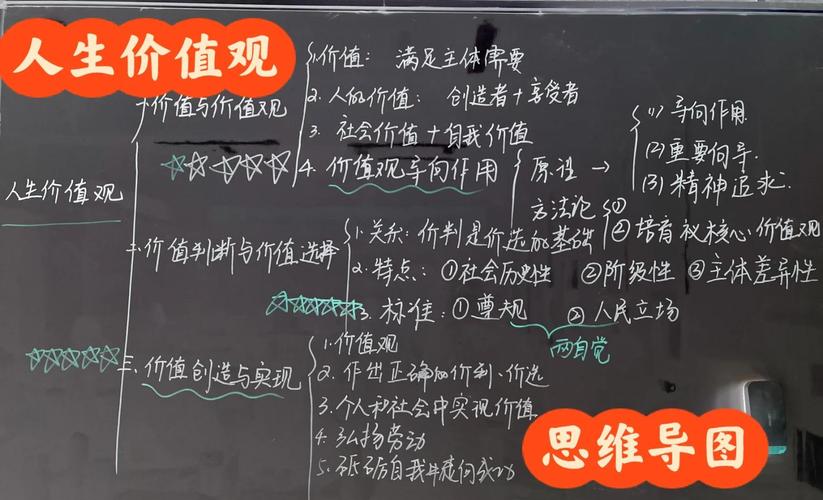 人生价值观
人生价值观
一、价值与价值观
1.价值: 满足主体需要
2.人的价值: 创造者+享受者
3.社会价值+自我价值
4.价值观导向作用
原理 →
(1)导向作用
(2)重要向导.
(3)精神追求.
方法论
①
②培育 核心价值观
二、价值判断与价值选择
1.关系:价判是价选的基础
2.特点: ①社会历史性 ②阶级性 ③主体差异性
3.标准: ①遵规 ②人民立场
两自觉
三、价值创造与实现
1.价值观
2.作出正确的价判、价选
3.个人和社会中实现价值
4.弘扬劳动
5.砥砺自我
思维导图